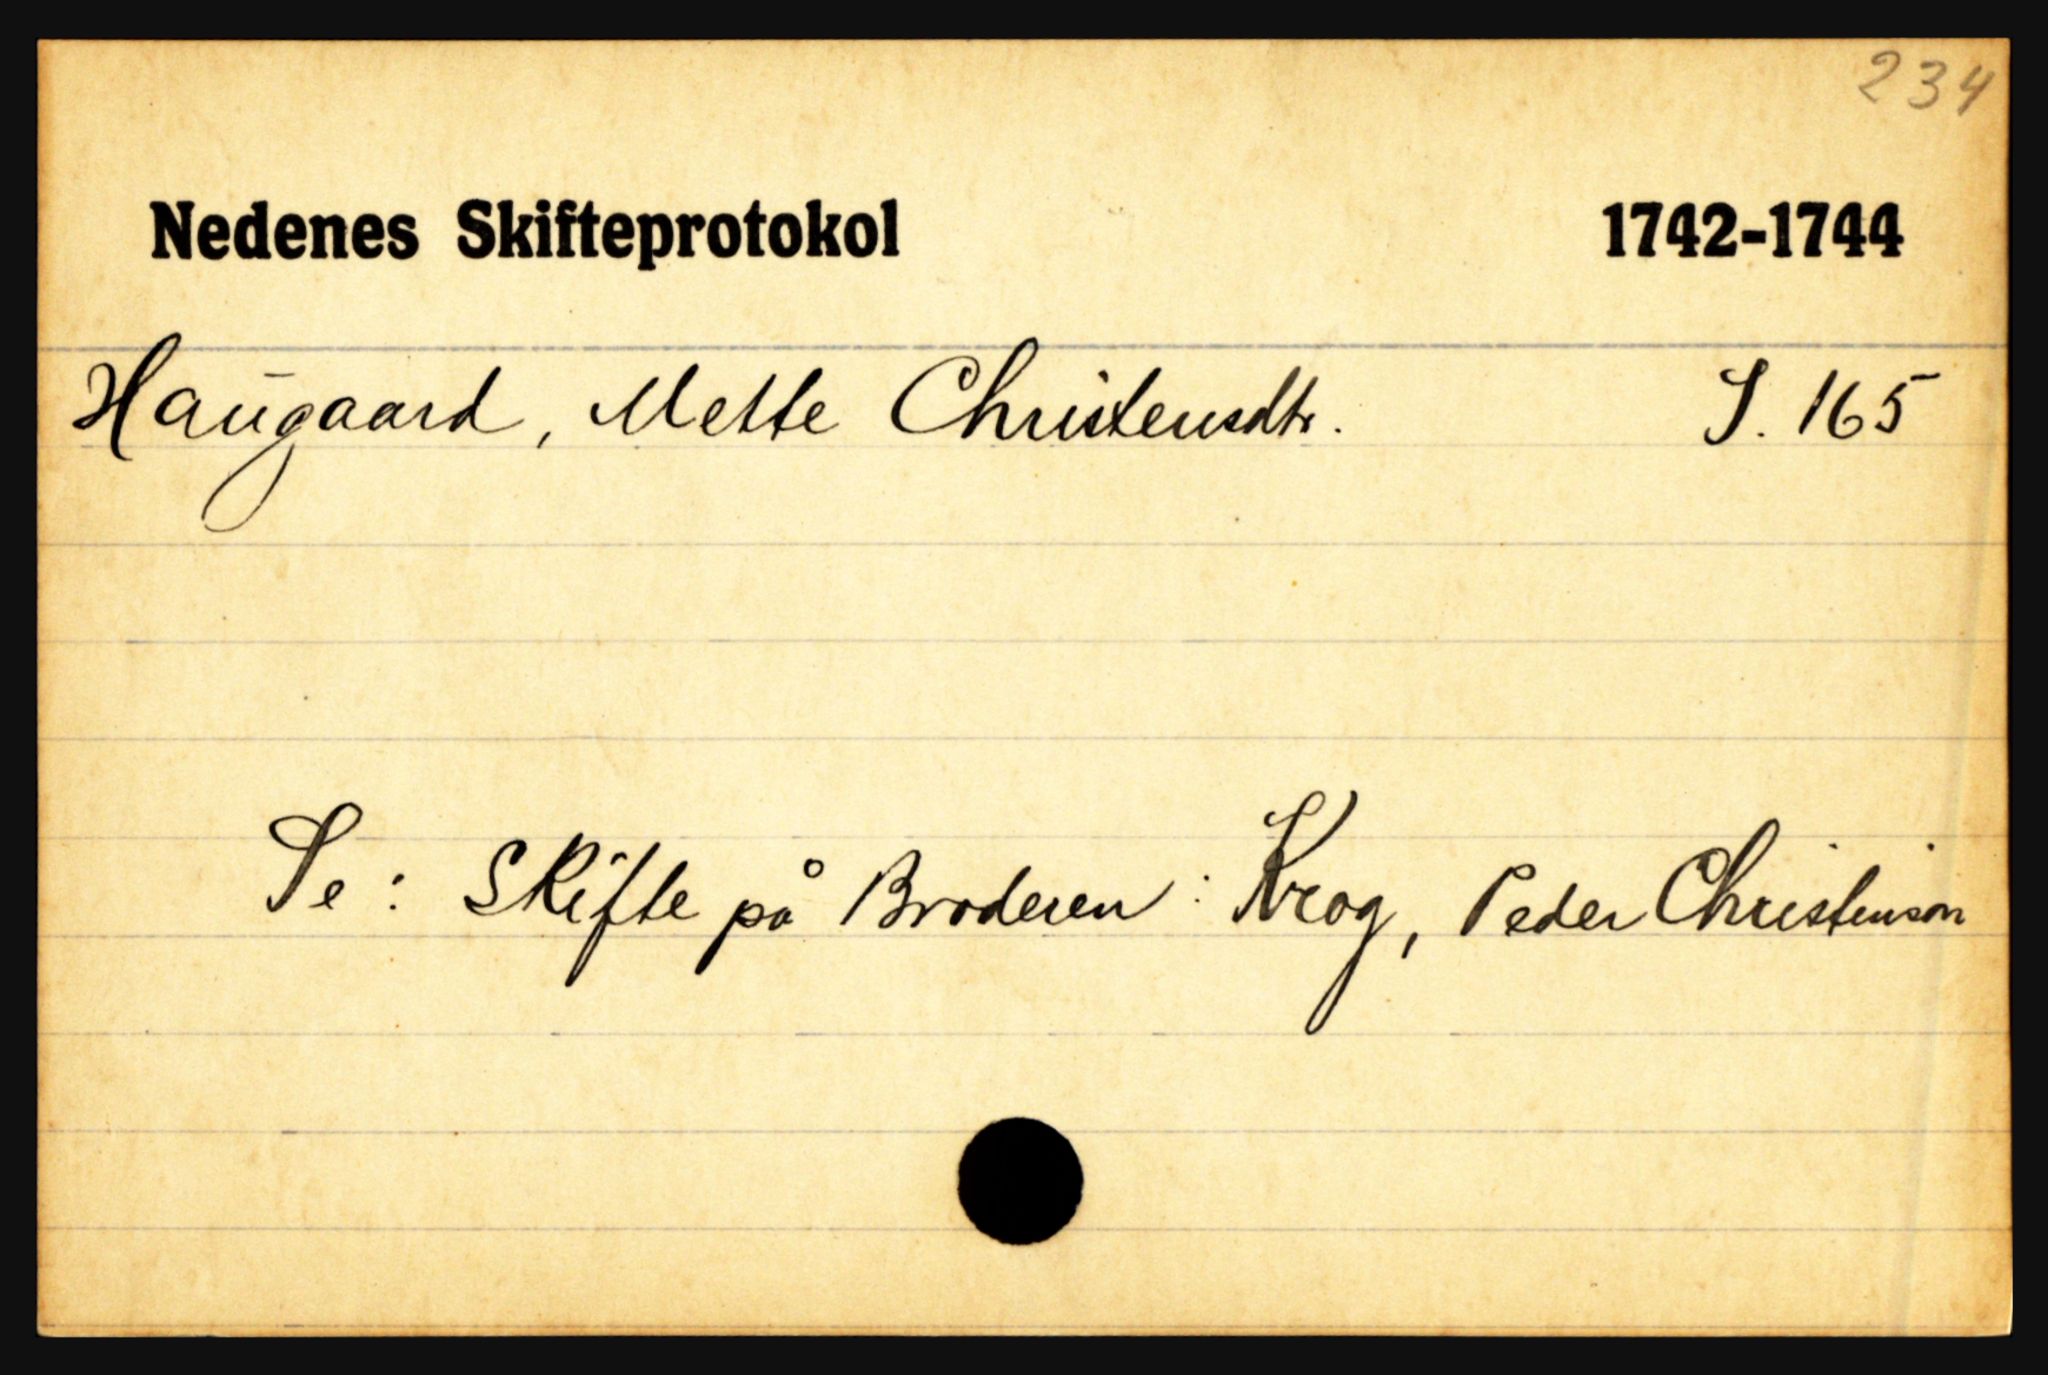 234
Nedenes Skifteprotokol 1742-1744
Haugaard, Mette Christensdtr. S. 165
Se: Skifte på Broderen: Krog, Peder Christenson